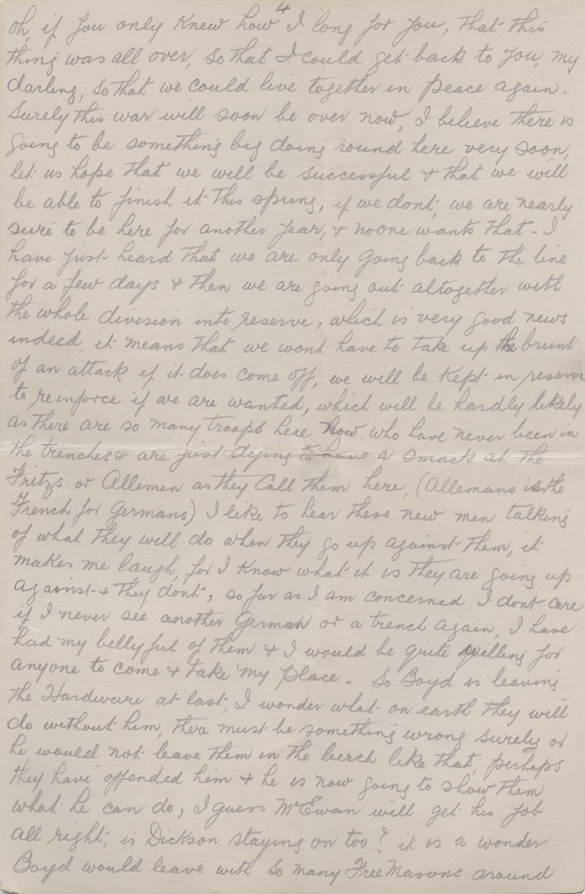 4
oh, if you only knew how I long for you, that this
thing was all over, so that I could get back to you, my
darling, so that we could live together in peace again.
Surely this war will soon be over now, I believe there is
going to be something big doing round here very soon,
let us hope that we will be successful & that we will
be able to finish it this spring, if we dont, we are nearly
sure to be here for another year, & no one wants that. I
have just heard that we are only going back to the line
for a few days & then we are going out altogether with
the whole division into reserve, which is very good news
indeed, it means that we wont have to take up the brunt
of an attack if it does come off, we will be kept in reserve
to reinforce if we are wanted, which will be hardly likely
as there are so many troops here now, who have never been in
the trenches & are just dying to have a smack at the
Fritzs or Allemen as they call them here, (Allemans is the
French for Germans) I like to hear these new men talking
of what they will do when they go up against them, it
makes me laugh, for I know what it is they are going up
against & they dont, so far as I am concerned I dont care
if I never see another German or a trench again, I have
had my belly ful of them & I would be quite willing for
anyone to come & take my place. So Boyd is leaving
the Hardware at last, I wonder what on earth they will
do without him, there must be something wrong surely or
he would not leave them in the lerch like that perhaps
they have offended him & he is now going to show them
what he can do, I guess McEwan will get his job
all right, is Dickson staying on too? it is a wonder
Boyd would leave with so many Free Masons around